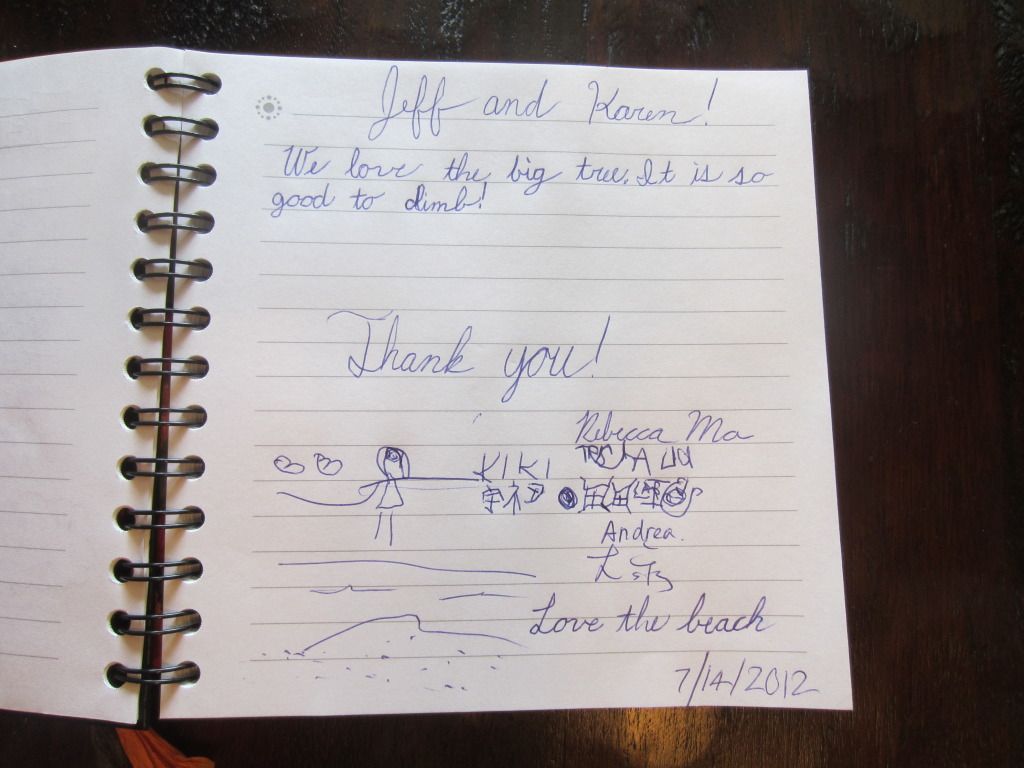 Jeff and Karen!
We love the big tree. It is so
good to climb!
Thank you!
Rebecca Ma
KIKI
Andrea.
Love the beach
7/14/2012